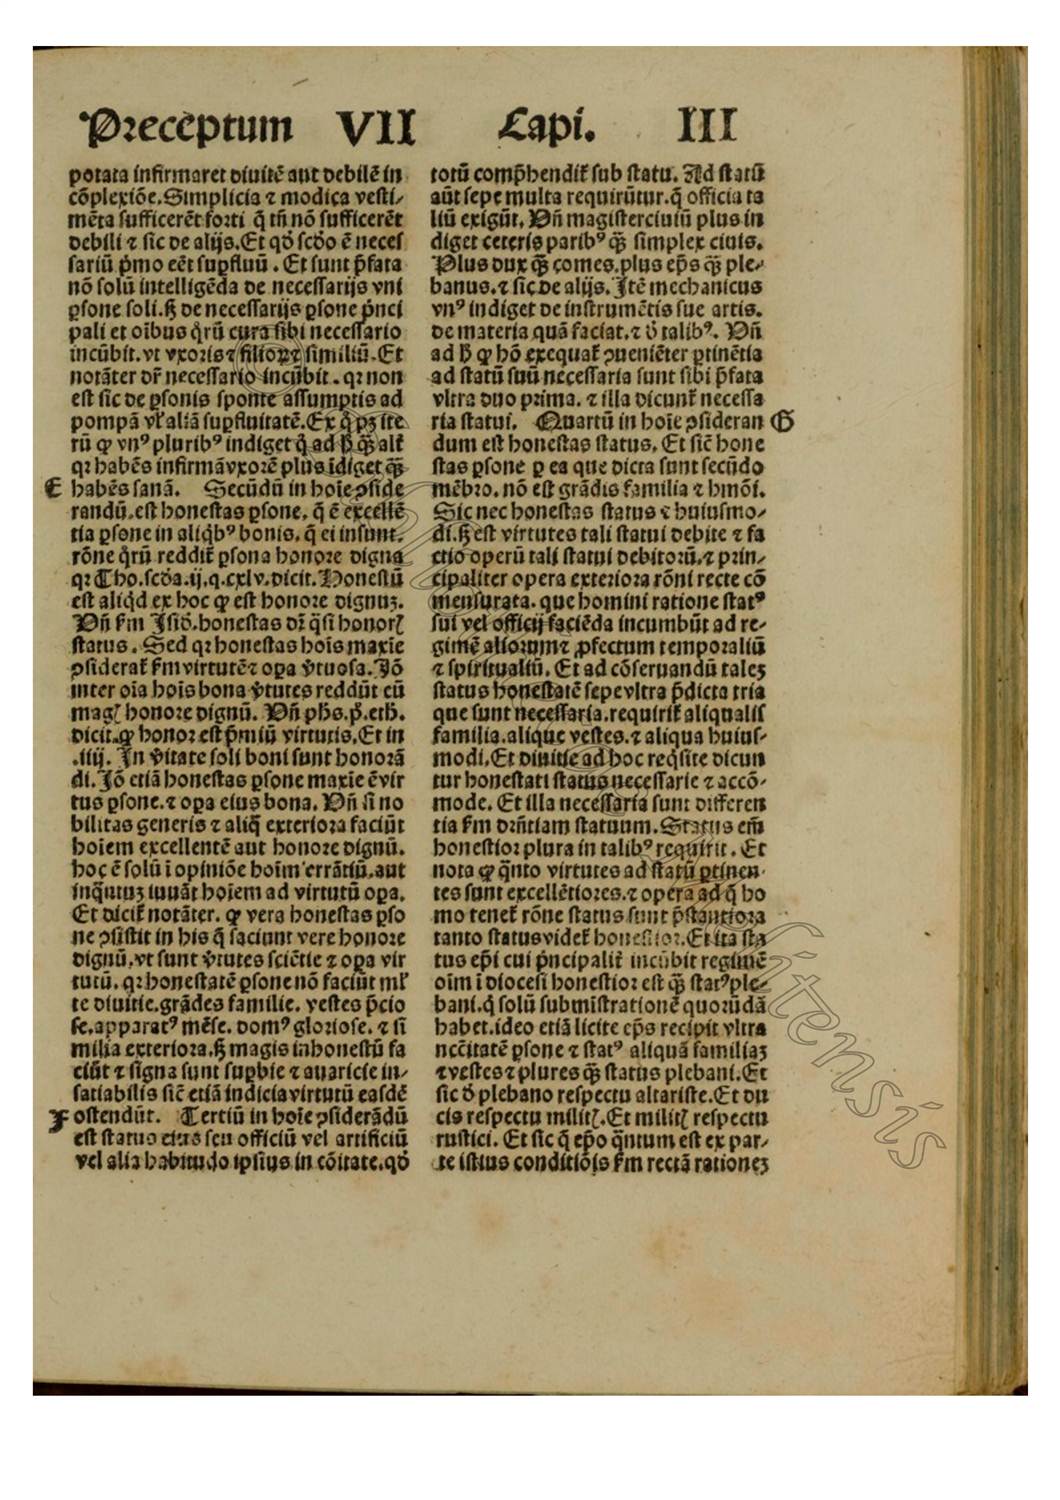 Preceptum VII Capi. III
potata infirmaret diuitē aut debilē in
cōplexiōe. Simplicia ⁊ modica vesti-
mēta sufficerēt forti q̄ tn̄ nō sufficerēt
debili ⁊ sic de alijs. Et qd̄ scd̄o ē neces
sariū p̄mo eēt suꝑfluū. Et sunt p̄fata
nō solū intelligēda de necessarijs vni
ꝑsone soli. sꝫ de necessarijs ꝑsone p̄nci
pali et oībus q̄rū cura sibi necessario
incūbit. vt vxoris ⁊ filioꝝ ⁊ similiū. Et
notāter dr̄ necessario incūbit. qr non
est sic de ꝑsonis sponte assumptis ad
pompā vl̄ aliā suꝑfluitatē. Ex q̄ pꝫ ite
rū ꝙ vnꝰ pluribꝰ indiget q̄ ad h̄ ꝙ̄ alt̄
qr habēs infirmā vxorē plus īdiget ꝙ̄
E habēs sanā. Secūdū in hoīe ꝯside
randū. est honestas ꝑsone. q̄ ē excellē
tia ꝑsone in aliq̄bꝰ bonis. q̄ ei insunt.
rōne q̄rū reddit̄ ꝑsona honore digna
qr Tho. scd̄a .ij. q. cxlv. dicit. Honestū
est aliqd ex hoc ꝙ est honore dignuꝫ.
Vn̄ fm Isid̄. honestas dr̄ q̄si honorꝭ
status. Sed qr honestas hoīs maxīe
ꝯsiderat̄ fm virtutē ⁊ oꝑa v̄tuosa. Iō
inter oīa hoīs bona v̄tutes reddūt eū
magꝭ honore dignū. Vn̄ ph̄s. p̄. eth̄.
dicit. ꝙ honor est p̄miū virtutis. Et in
.iiij. In v̄itate soli boni sunt honorā
di. Iō etiā honestas ꝑsone maxīe ē vir
tus ꝑsone. ⁊ oꝑa eius bona. Vn̄ si no
bilitas generis ⁊ aliq̄ exteriora faciūt
hoīem excellentē aut honore dignū.
hoc ē solū ī opiniōe hoīm errātiū. aut
inq̄ntuꝫ iuuāt hoīem ad virtutū oꝑa.
Et dicit̄ notāter. ꝙ vera honestas ꝑso
ne ꝯsistit in his q̄ faciunt vere honore
dignū. vt sunt v̄tutes sciētie ⁊ oꝑa vir
tutū. qr honestatē ꝑsone nō faciūt ml̄
te diuitie. grādes familie. vestes p̄cio
se. apparatꝰ mēse. domꝰ gloriose. ⁊ si
milia exteriora. sꝫ magis inhonestū fa
ciūt ⁊ signa sunt suꝑbie ⁊ auaricie in-
satiabilis sicē etiā indicia virtutū easdē
F ostendūt. Tertiū in hoīe ꝯsiderādū
est status eius seu officiū vel artificiū
vel alia habitudo ipsius in cōitate. qd̄
totū comp̄hendit̄ sub statu. Ad statū
aūt sepe multa requirūtur. q̄ officia ta
liū exigūt. Vn̄ magister ciuiū plus in
diget ceteris paribꝰ ꝙ̄ simplex ciuis.
Plus dux ꝙ̄ comes. plus ep̄s ꝙ̄ ple-
banus. ⁊ sic de alijs. Itē mechanicus
vnꝰ indiget de instrumētis sue artis.
de materia quā faciat. ⁊ d̄ talibꝰ. Vn̄
ad h̄ ꝙ hō exequat̄ ꝯueniēter ꝑtinētia
ad statū suū necessaria sunt sibi p̄fata
vltra duo prima. ⁊ illa dicunt̄ necessa
ria statui. Quartū in hoīe ꝯsideran G
dum est honestas status. Et sicē hone
stas ꝑsone ꝑ ea que dicta sunt secūdo
mēbro. nō est grādis familia ⁊ hmōi.
Sic nec honestas status ⁊ huiusmo-
di. sꝫ est virtutes tali statui debite ⁊ fa
ctio operū tali statui debitorū. ⁊ prin-
cipaliter opera exteriora rōni recte cō
mensurata. que homini ratione statꝰ
sui vel officij faciēda incumbūt ad re-
gimē aliorum ⁊ ꝓfectum temporaliū
⁊ spiritualiū. Et ad cōseruandū taleꝫ
status honestatē sepe vltra p̄dicta tria
que sunt necessaria. requirit̄ aliqualis
familia. alique vestes. ⁊ aliqua huius-
modi. Et diuitie ad hoc req̄site dicun
tur honestati status necessarie ⁊ accō-
mode. Et illa necessaria sunt differen
tia fm dr̄ntiam statuum. Status em̄
honestior plura in talibꝰ requirit. Et
nota ꝙ q̄nto virtutes ad statū ꝑtinen-
tes sunt excellētiores. ⁊ opera ad q̄ ho
mo tenet̄ rōne status sunt p̄stantiora
tanto status videt̄ honestior. Et ita sta
tus ep̄i cui p̄ncipalit̄ incūbit regimē
oīm ī diocesi honestior est ꝙ̄ statꝰ ple-
bani. q̄ solū submīstrationē quorūdā
habet. ideo etiā licite ep̄s recipit vltra
nccītatē ꝑsone ⁊ statꝰ aliquā familiaꝫ
⁊ vestes ⁊ plures ꝙ̄ status plebani. Et
sic d̄ plebano respectu altariste. Et du
cis respectu militꝭ. Et militꝭ respectu
rustici. Et sic q̄ ep̄o q̄ntum est ex par-
te istius conditiōis fm rectā rationeꝫ